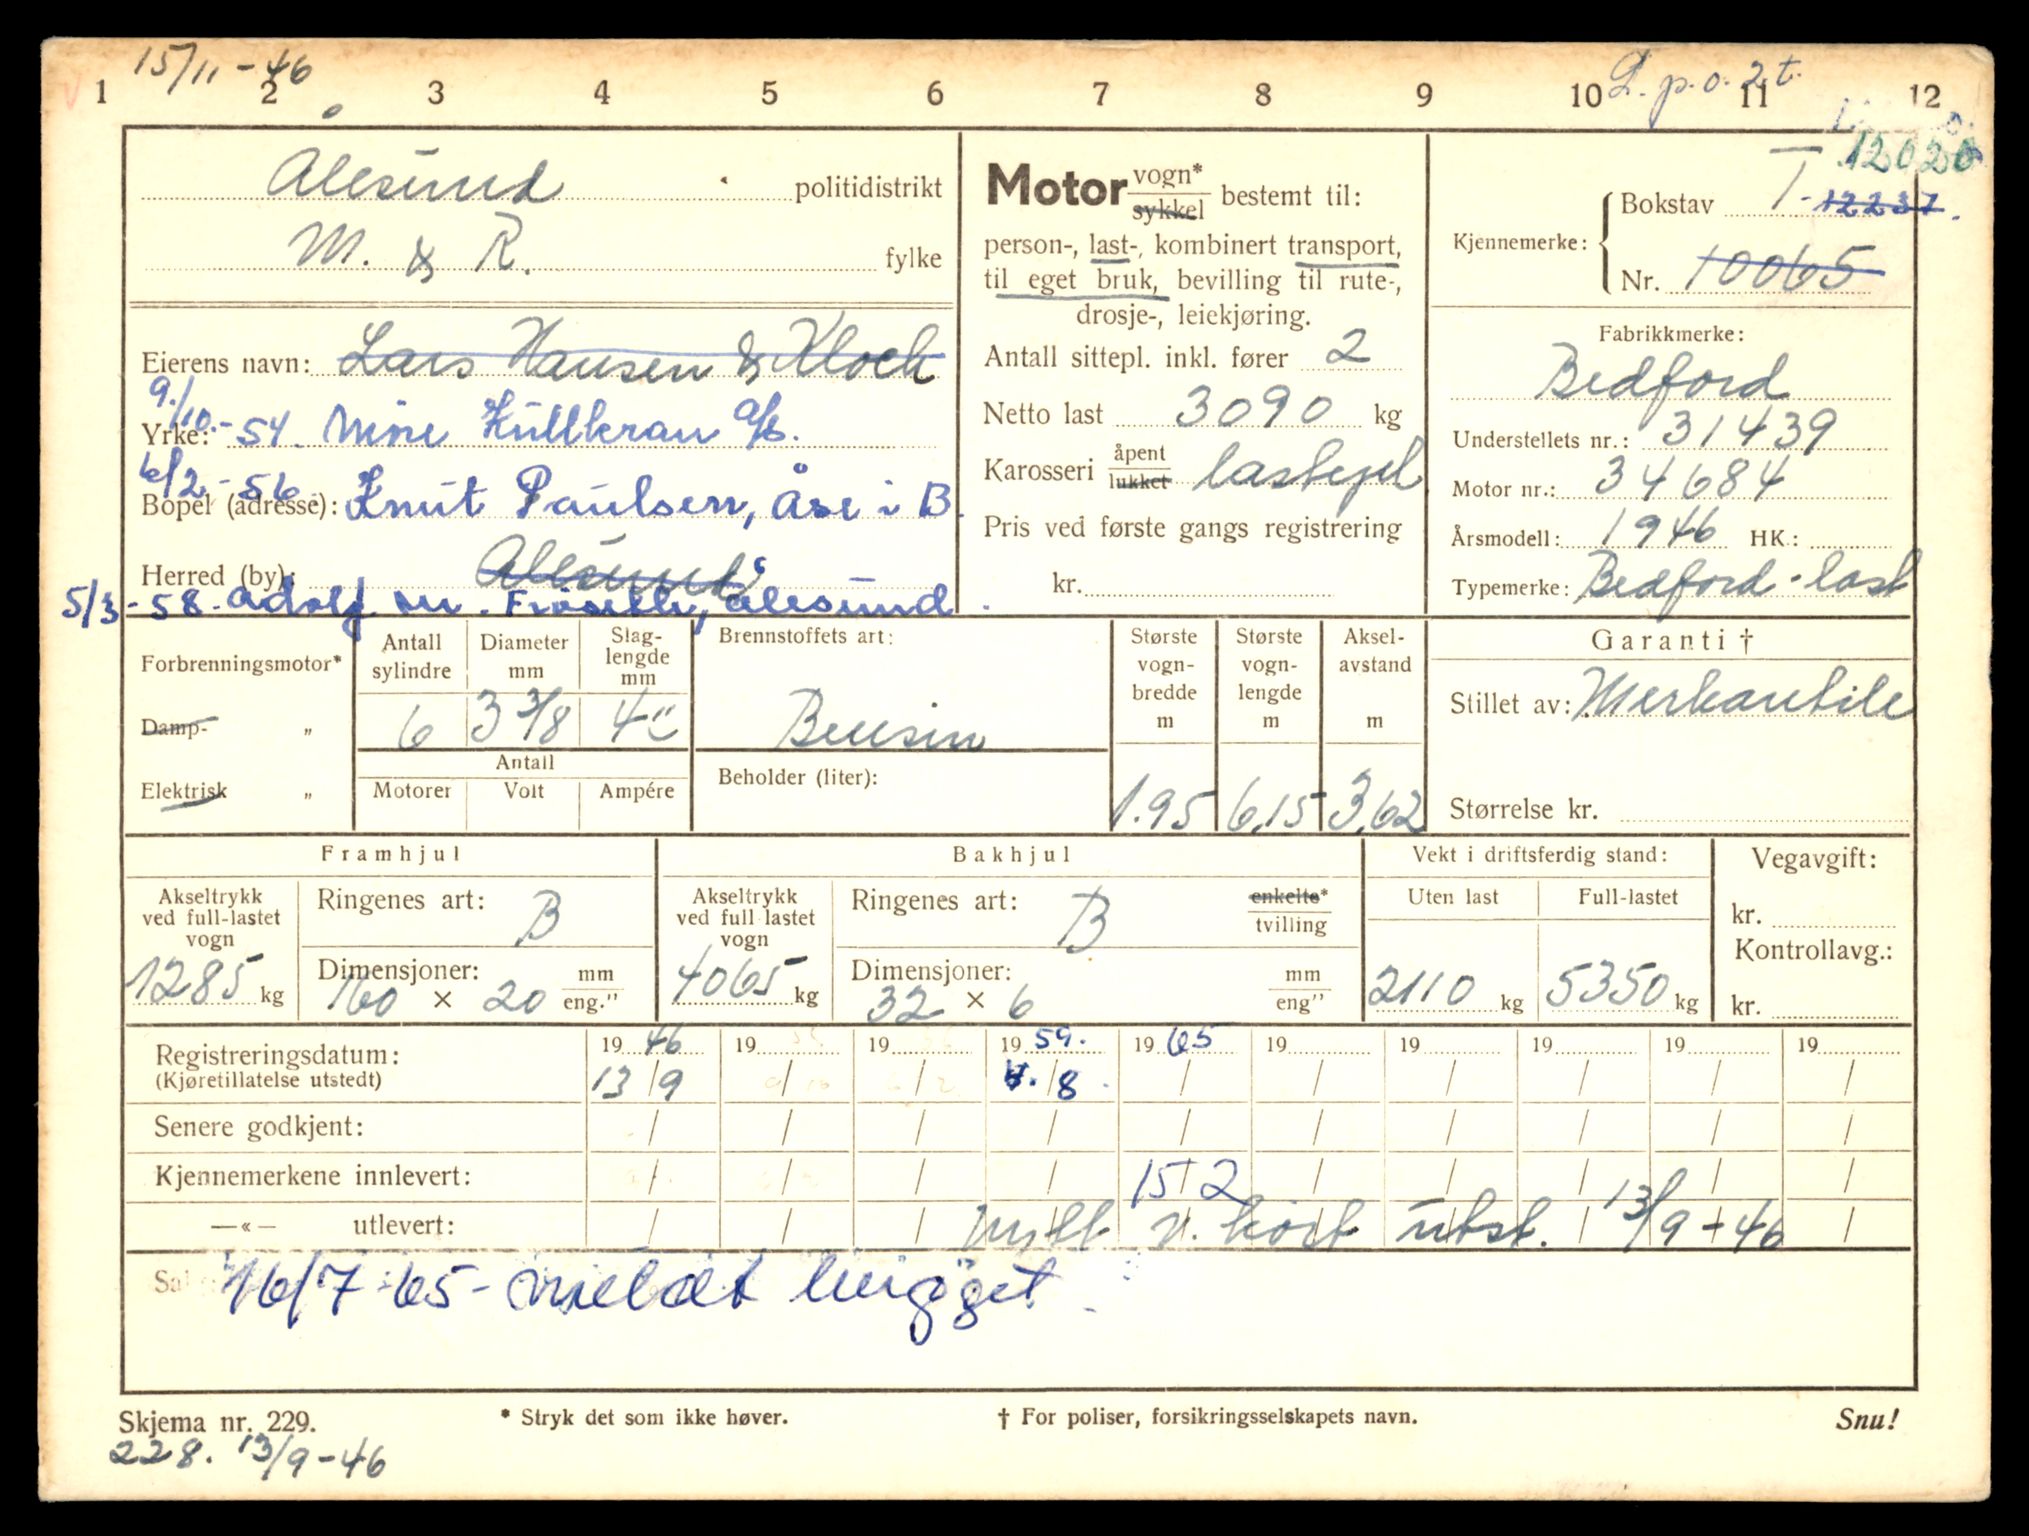 15/11 - 46
L. p. o. 2 t.
1 2 3 4 5 6 7 8 9 10 11 12
Ålesund politidistrikt
M. & R. fylke
Eierens navn: Lars Hansen & Kloch
9./10.-54. Møre Kullkran a/s.
Yrke:
6/2-56. Knut Paulsen, Åse i B.
Bopel (adresse):
Herred (by): Ålesund
5/3-58. Adolf M. Frøseth, Ålesund.
Motor vogn* sykkel bestemt til:
person-, last-, kombinert transport,
til eget bruk, bevilling til rute-,
drosje-, leiekjøring.
Antall sittepl. inkl. fører 2
Netto last 3090 kg
Karosseri åpent lukket lastepl
Pris ved første gangs registrering
kr.
12020
Kjennemerke: Bokstav T-12237.
Nr. 10065
Fabrikkmerke:
Bedford
Understellets nr.: 31439
Motor nr.: 34684
Årsmodell: 1946 HK.:
Typemerke: Bedford-last
Forbrenningsmotor*
Damp- „
Elektrisk „
Antall sylindre 6
Diameter mm 3 3/8
Slag-lengde mm 4"
Antall
Motorer Volt Ampére
Brennstoffets art:
Bensin
Beholder (liter):
Største vogn-bredde m 1.95
Største vogn-lengde m 6,15
Aksel-avstand m 3,62
Garanti †
Stillet av: Merkantile
Størrelse kr.
Framhjul
Akseltrykk ved full-lastet vogn 1285 kg
Ringenes art: B
Dimensjoner: 160 × 20 mm eng."
Bakhjul
Akseltrykk ved full lastet vogn 4065 kg
Ringenes art: B enkelte* tvilling
Dimensjoner: 32 × 6 mm eng"
Vekt i driftsferdig stand:
Uten last 2110 kg
Full-lastet 5350 kg
Vegavgift:
kr.
Kontrollavg.:
kr.
Registreringsdatum: 1946 19 19 1959. 1965 19 19 19 19 19
(Kjøretillatelse utstedt) 13/9 / / /8. / / / / / /
Senere godkjent: / / / / / / / / / /
Kjennemerkene innlevert: / / / / 15/2 / / / / /
—«— utlevert: / / / / / / / / / /
Nytt v. kort utst. 13/9-46
16/7-65- meldt hugget
Skjema nr. 229.
* Stryk det som ikke høver.
† For poliser, forsikringsselskapets navn.
Snu!
228. 13/9-46